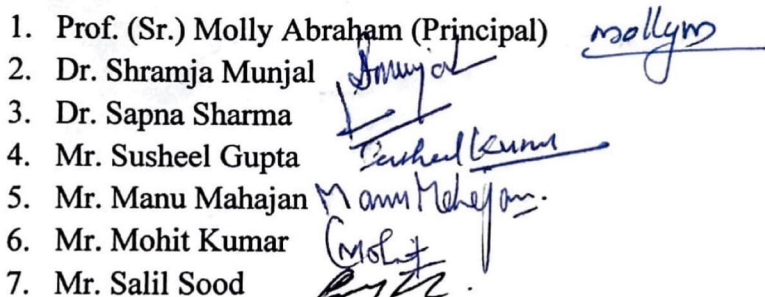 1. Prof. (Sr.) Molly Abraham (Principal) mollym
2. Dr. Shramja Munjal SMunjal
3. Dr. Sapna Sharma
4. Mr. Susheel Gupta Susheel Kumar
5. Mr. Manu Mahajan Manu Mahajan.
6. Mr. Mohit Kumar Mohit
7. Mr. Salil Sood